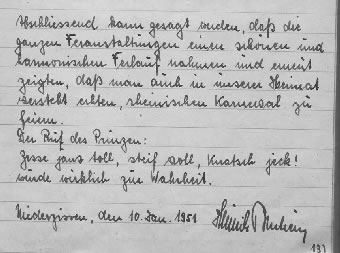 Abschliessend kann gesagt werden, daß die
ganzen Veranstaltungen einen schönen und
harmonischen Verlauf nahmen und erneut
zeigten, daß man auch in unserer Heimat
versteht echten, rheinischen Karneval zu
feiern.
Der Ruf des Prinzen:
Jesse janz toll, steif voll, Knatsch jeck!
wurde wirklich zur Wahrheit.
Niederzissen, den 10. Jan. 1951 Heinrich